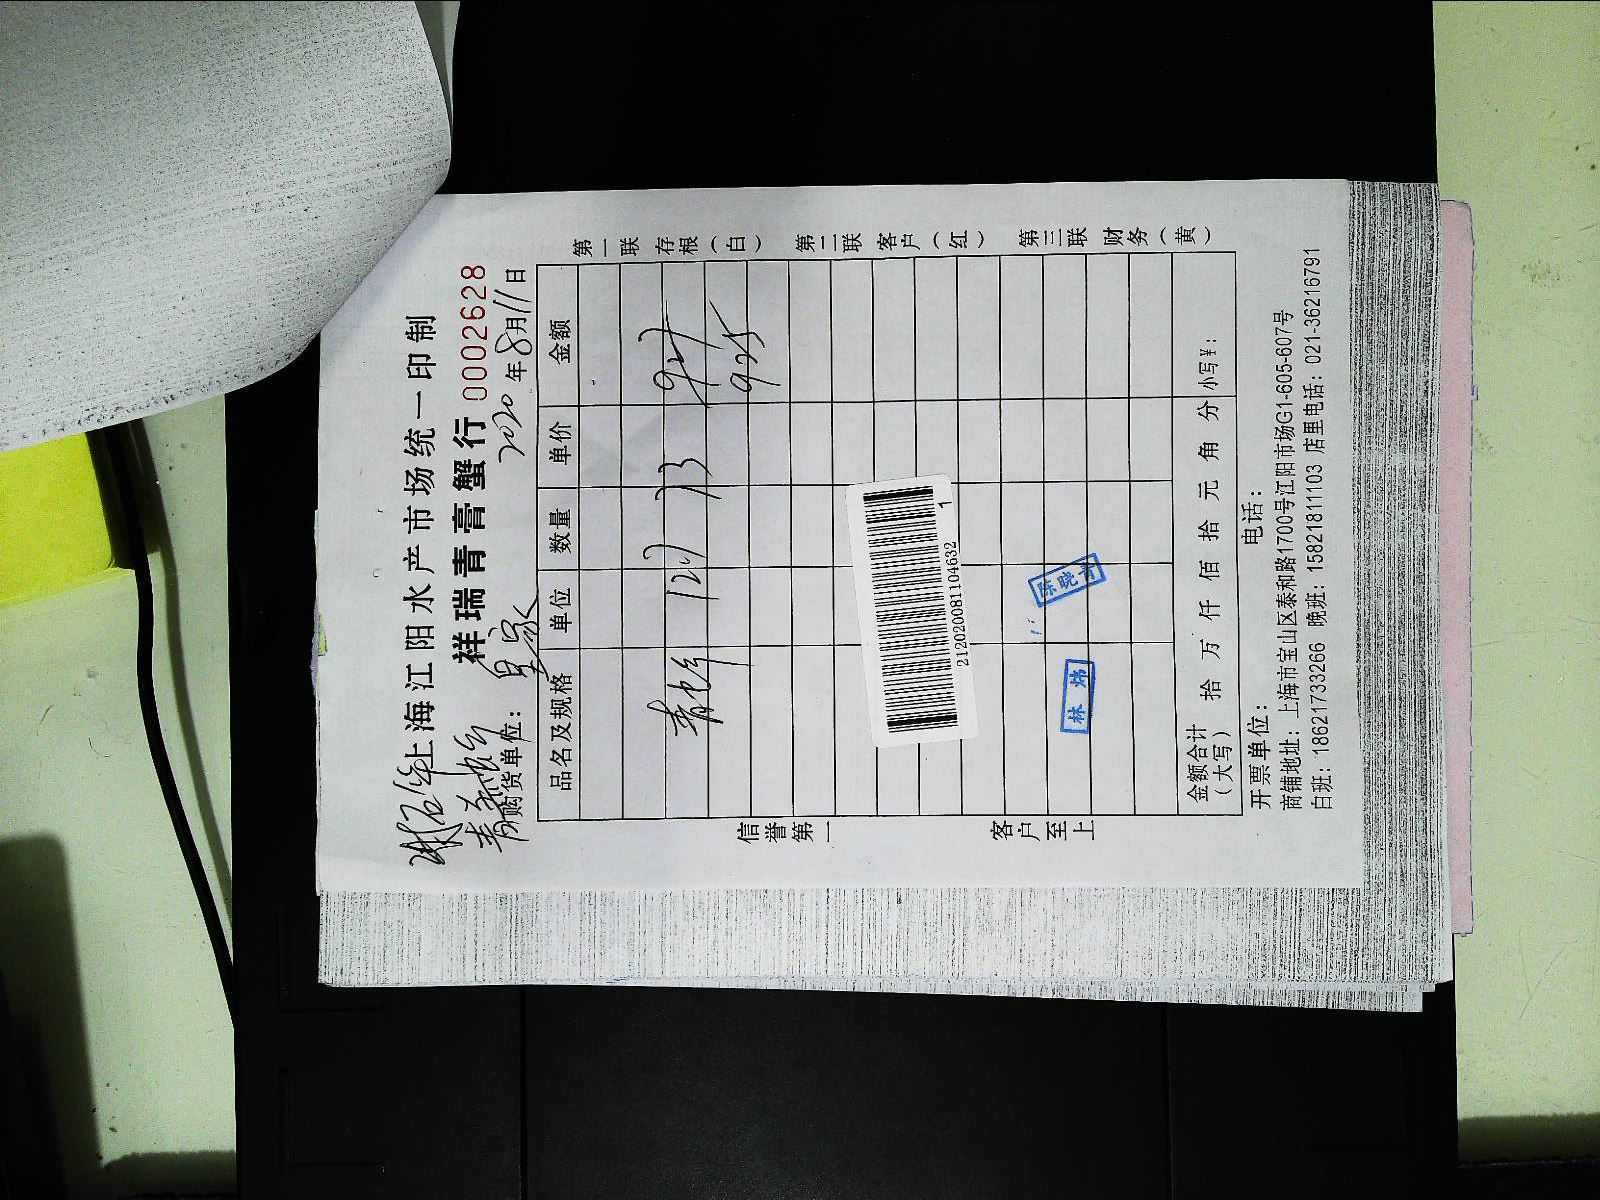 上海江阳水产市场统一印制
祥瑞青膏蟹行 0002628
购货单位： 2020年8月11日
品名及规格 单位 数量 单价 金额
127 73 927
925
212020081104632 1
陈晓
林炜
金额合计（大写） 拾 万 仟 佰 拾 元 角 分 小写¥：
开票单位： 电话：
商铺地址：上海市宝山区泰和路1700号江阳市场G1-605-607号
白班：18621733266 晚班：15821811103 店里电话：021-36216791
信誉第一 客户至上
第一联 存根（白） 第二联 客户（红） 第三联 财务（黄）